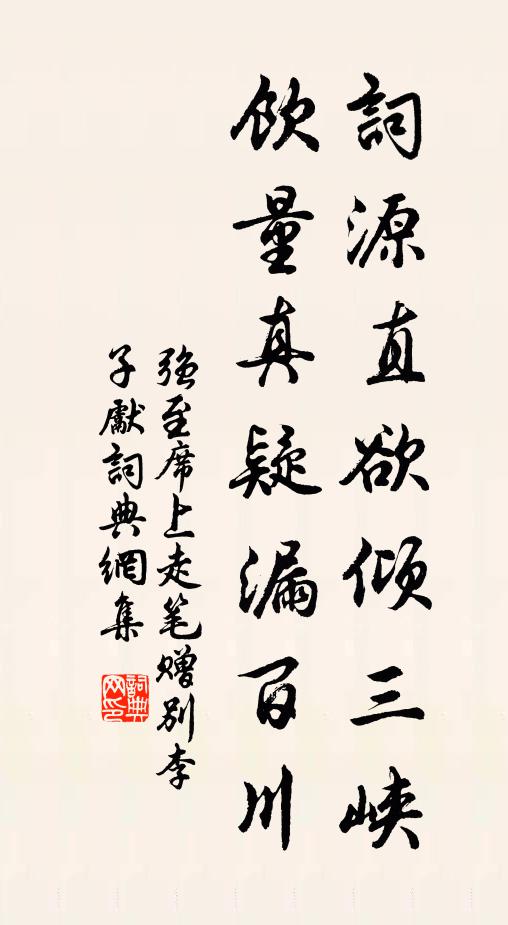 詞源直欲傾三峽
飲量真疑漏百川
強至席上走笔贈別李
子獻詞典網集
詞典
网印